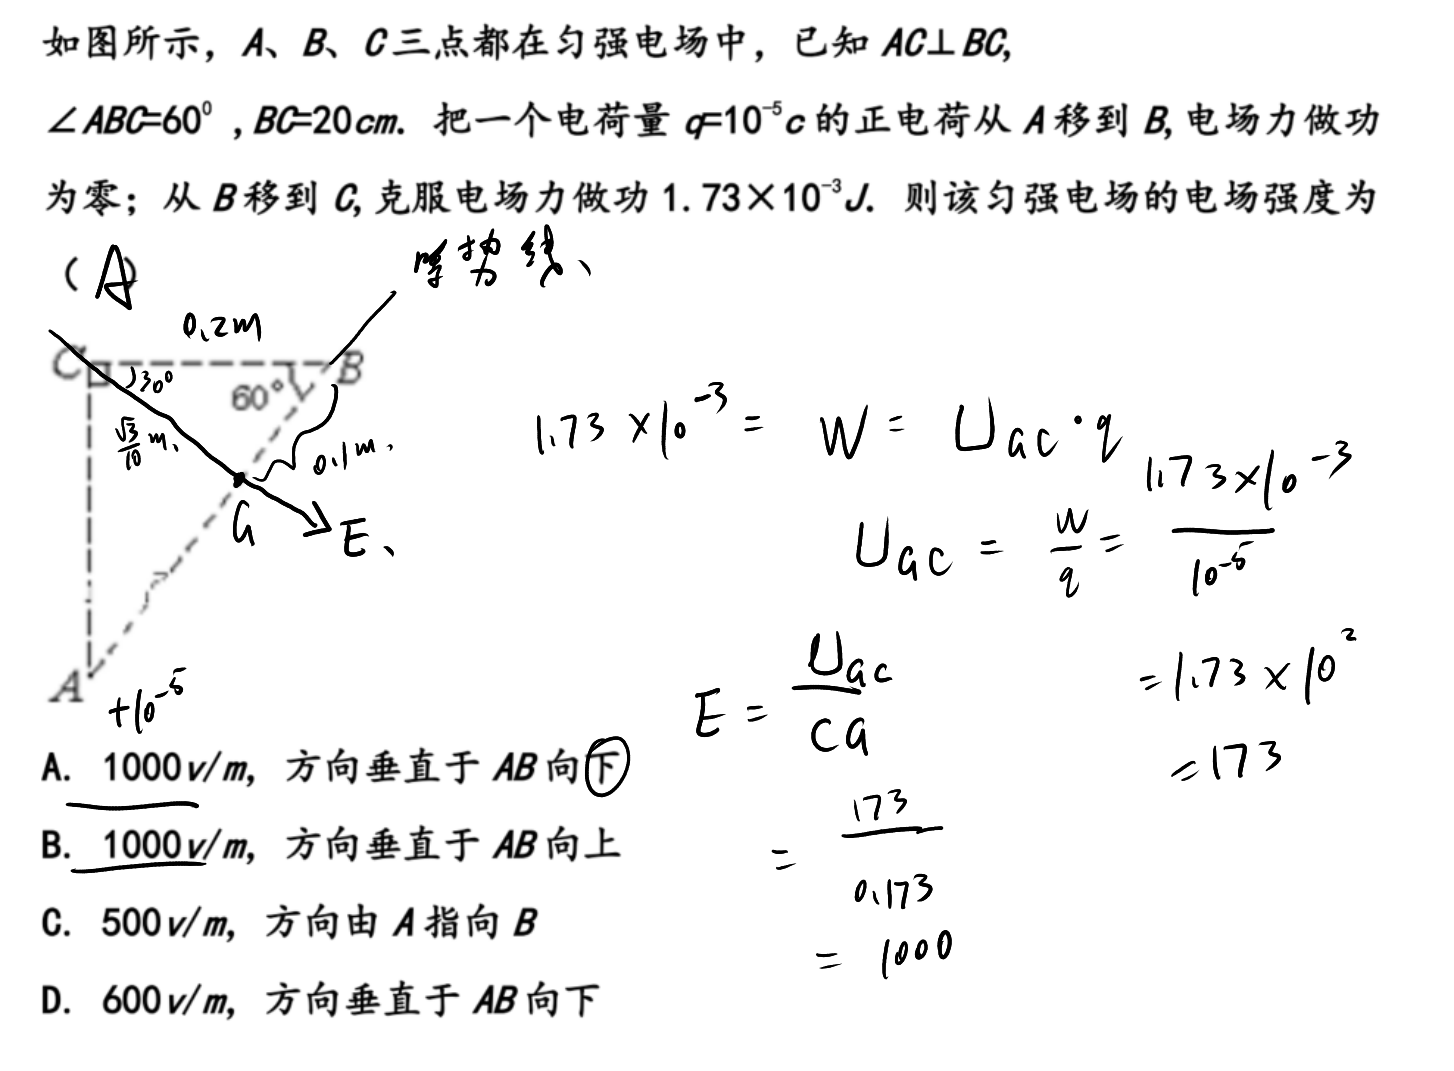 如图所示，A、B、C三点都在匀强电场中，已知 AC⊥BC，
∠ABC=60⁰ ，BC=20cm．把一个电荷量 q=10⁻⁵c 的正电荷从 A 移到 B，电场力做功
为零；从 B 移到 C，克服电场力做功 1.73×10⁻³J．则该匀强电场的电场强度为
（ A ）
势线、
0.2m
C
B
30°
60°
√3/10 m、
0.1m.
G
E、
A
+10⁻⁵
1.73×10⁻³ = W = Uac·q
Uac = W/q = 1.73×10⁻³/10⁻⁵
= 1.73×10²
= 173
E = Uac/CG
= 173/0.173
= 1000
A. 1000v/m，方向垂直于 AB 向下
B. 1000v/m，方向垂直于 AB 向上
C. 500v/m，方向由 A 指向 B
D. 600v/m，方向垂直于 AB 向下